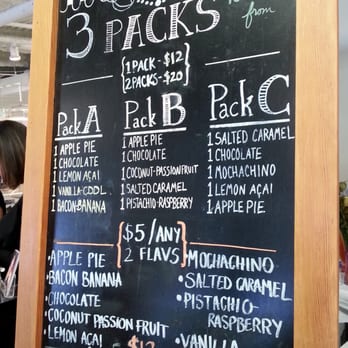 3 PACKS
from
1 PACK - $12
2 PACKS - $20
Pack A
1 APPLE PIE
1 CHOCOLATE
1 LEMON AÇAI
1 VANILLA-COOL
1 BACON-BANANA
Pack B
1 APPLE PIE
1 CHOCOLATE
1 COCONUT-PASSIONFRUIT
1 SALTED CARAMEL
1 PISTACHIO-RASPBERRY
Pack C
1 SALTED CARAMEL
1 CHOCOLATE
1 MOCHACHINO
1 LEMON AÇAI
1 APPLE PIE
$5/ANY
2 FLAVS
•APPLE PIE
•BACON BANANA
•CHOCOLATE
•COCONUT PASSION FRUIT
•LEMON AÇAI
MOCHACHINO
•SALTED CARAMEL
•PISTACHIO-
RASPBERRY
•VANILLA